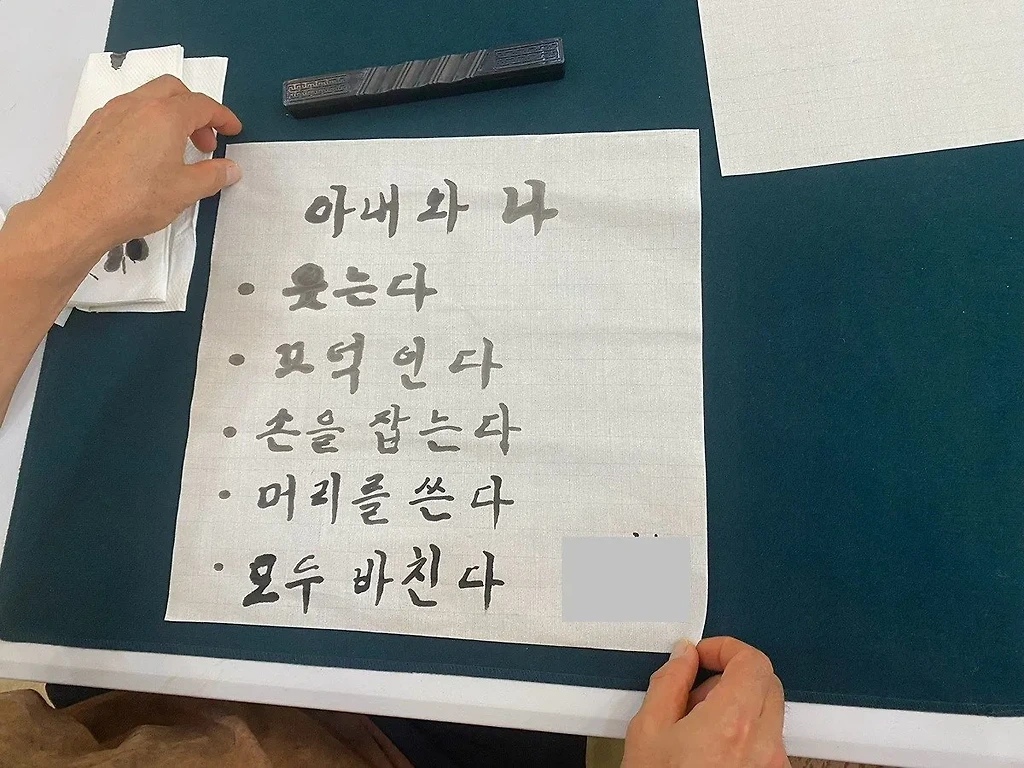 아내와 나
• 웃는다
• 끄덕인다
• 손을 잡는다
• 머리를 쓴다
• 모두 바친다